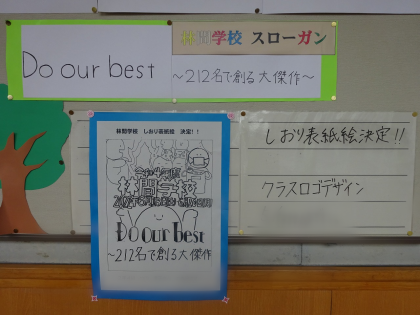 林間学校 スローガン
Do our best
～212名で創る大傑作～
林間学校 しおり表紙絵 決定！！
林間学校
Do our best
～212名で創る大傑作
しおり表紙絵決定!!
クラスロゴデザイン